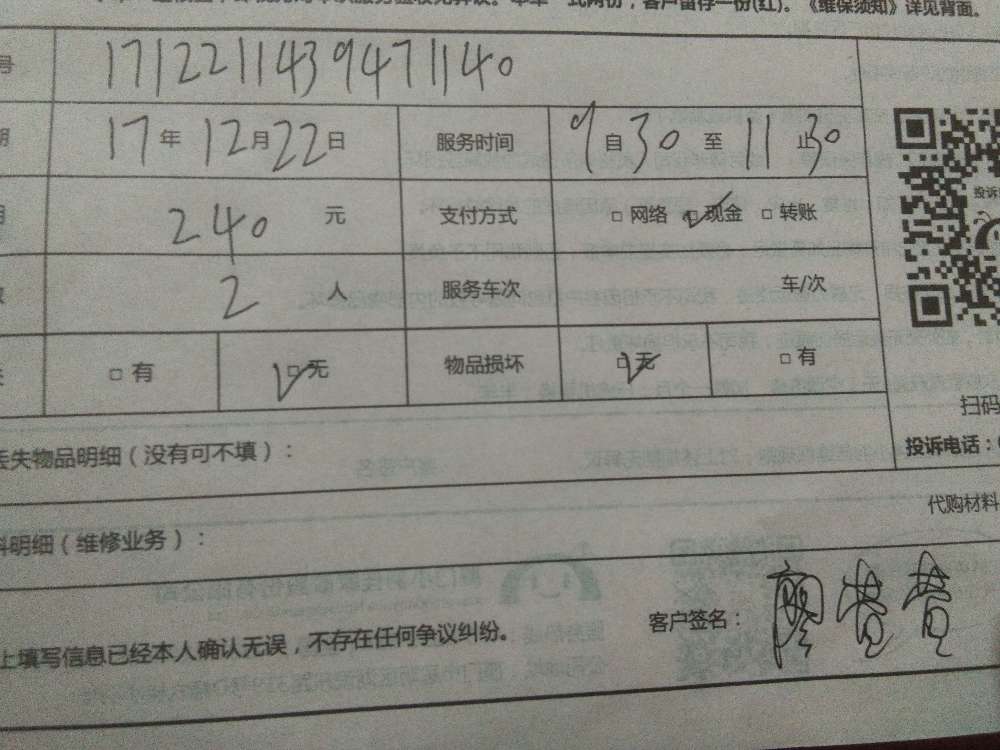 服务验收无异议。本单一式两份，客户留存一份(红)。《维保须知》详见背面。
号 1712211439471140
期 17年12月22日 服务时间 9自30至11止30
用 240元 支付方式 □网络 □✓现金 □转账
数 2人 服务车次 车/次
失 □有 □✓无 物品损坏 □✓无 □有
投诉
扫码
丢失物品明细（没有可不填）： 投诉电话：
代购材料
料明细（维修业务）：
上填写信息已经本人确认无误，不存在任何争议纠纷。 客户签名：廖